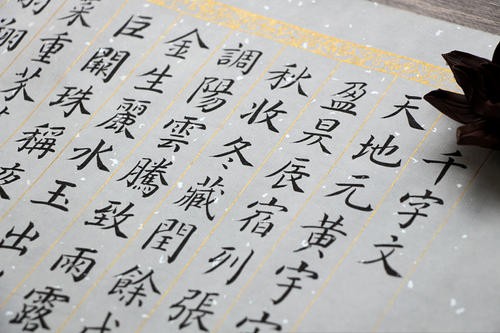 千字文
天地元黃宇
盈昃辰宿列張
秋收冬藏閏餘成
調陽雲騰致雨露
金生麗水玉出
巨闕珠稱夜
菜重芥
翔